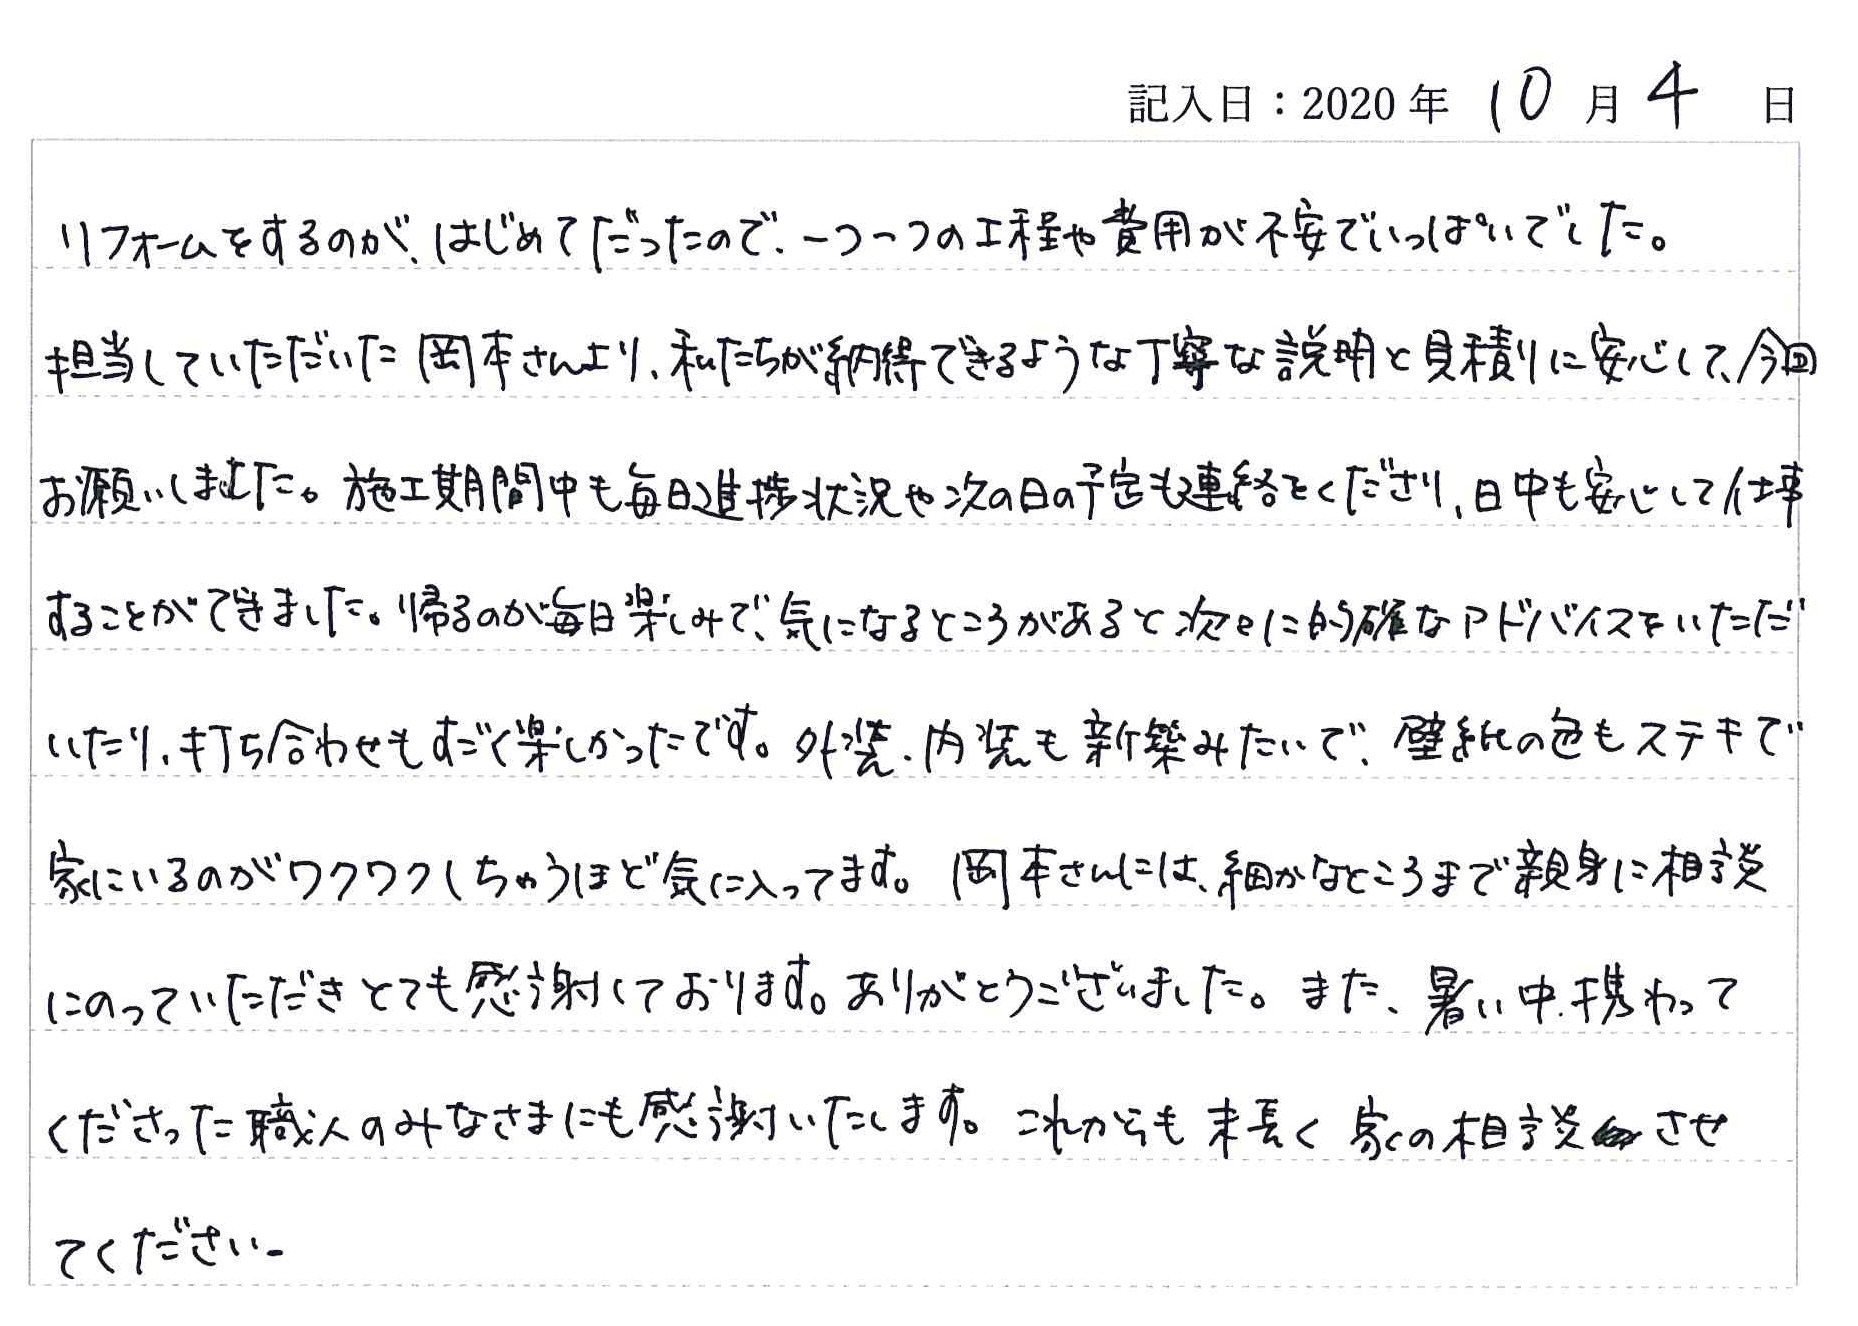 記入日：2020年 10月 4 日
リフォームをするのが、はじめてだったので、一つ一つの工程や費用が不安でいっぱいでした。
担当していただいた岡本さんより、私たちが納得できるような丁寧な説明と見積りに安心して、今回
お願いしました。施工期間中も毎日進捗状況や次の日の予定も連絡をくださり、日中も安心して仕事
することができました。帰るのが毎日楽しみで、気になるところがあると次々に的確なアドバイスをいただ
いたり、打ち合わせもすごく楽しかったです。外装、内装も新築みたいで、壁紙の色もステキで
家にいるのがワクワクしちゃうほど気に入ってます。岡本さんには、細かなところまで親身に相談
にのっていただきとても感謝しております。ありがとうございました。また、暑い中、携わって
くださった職人のみなさまにも感謝いたします。これからも末長く家の相談させ
てください。